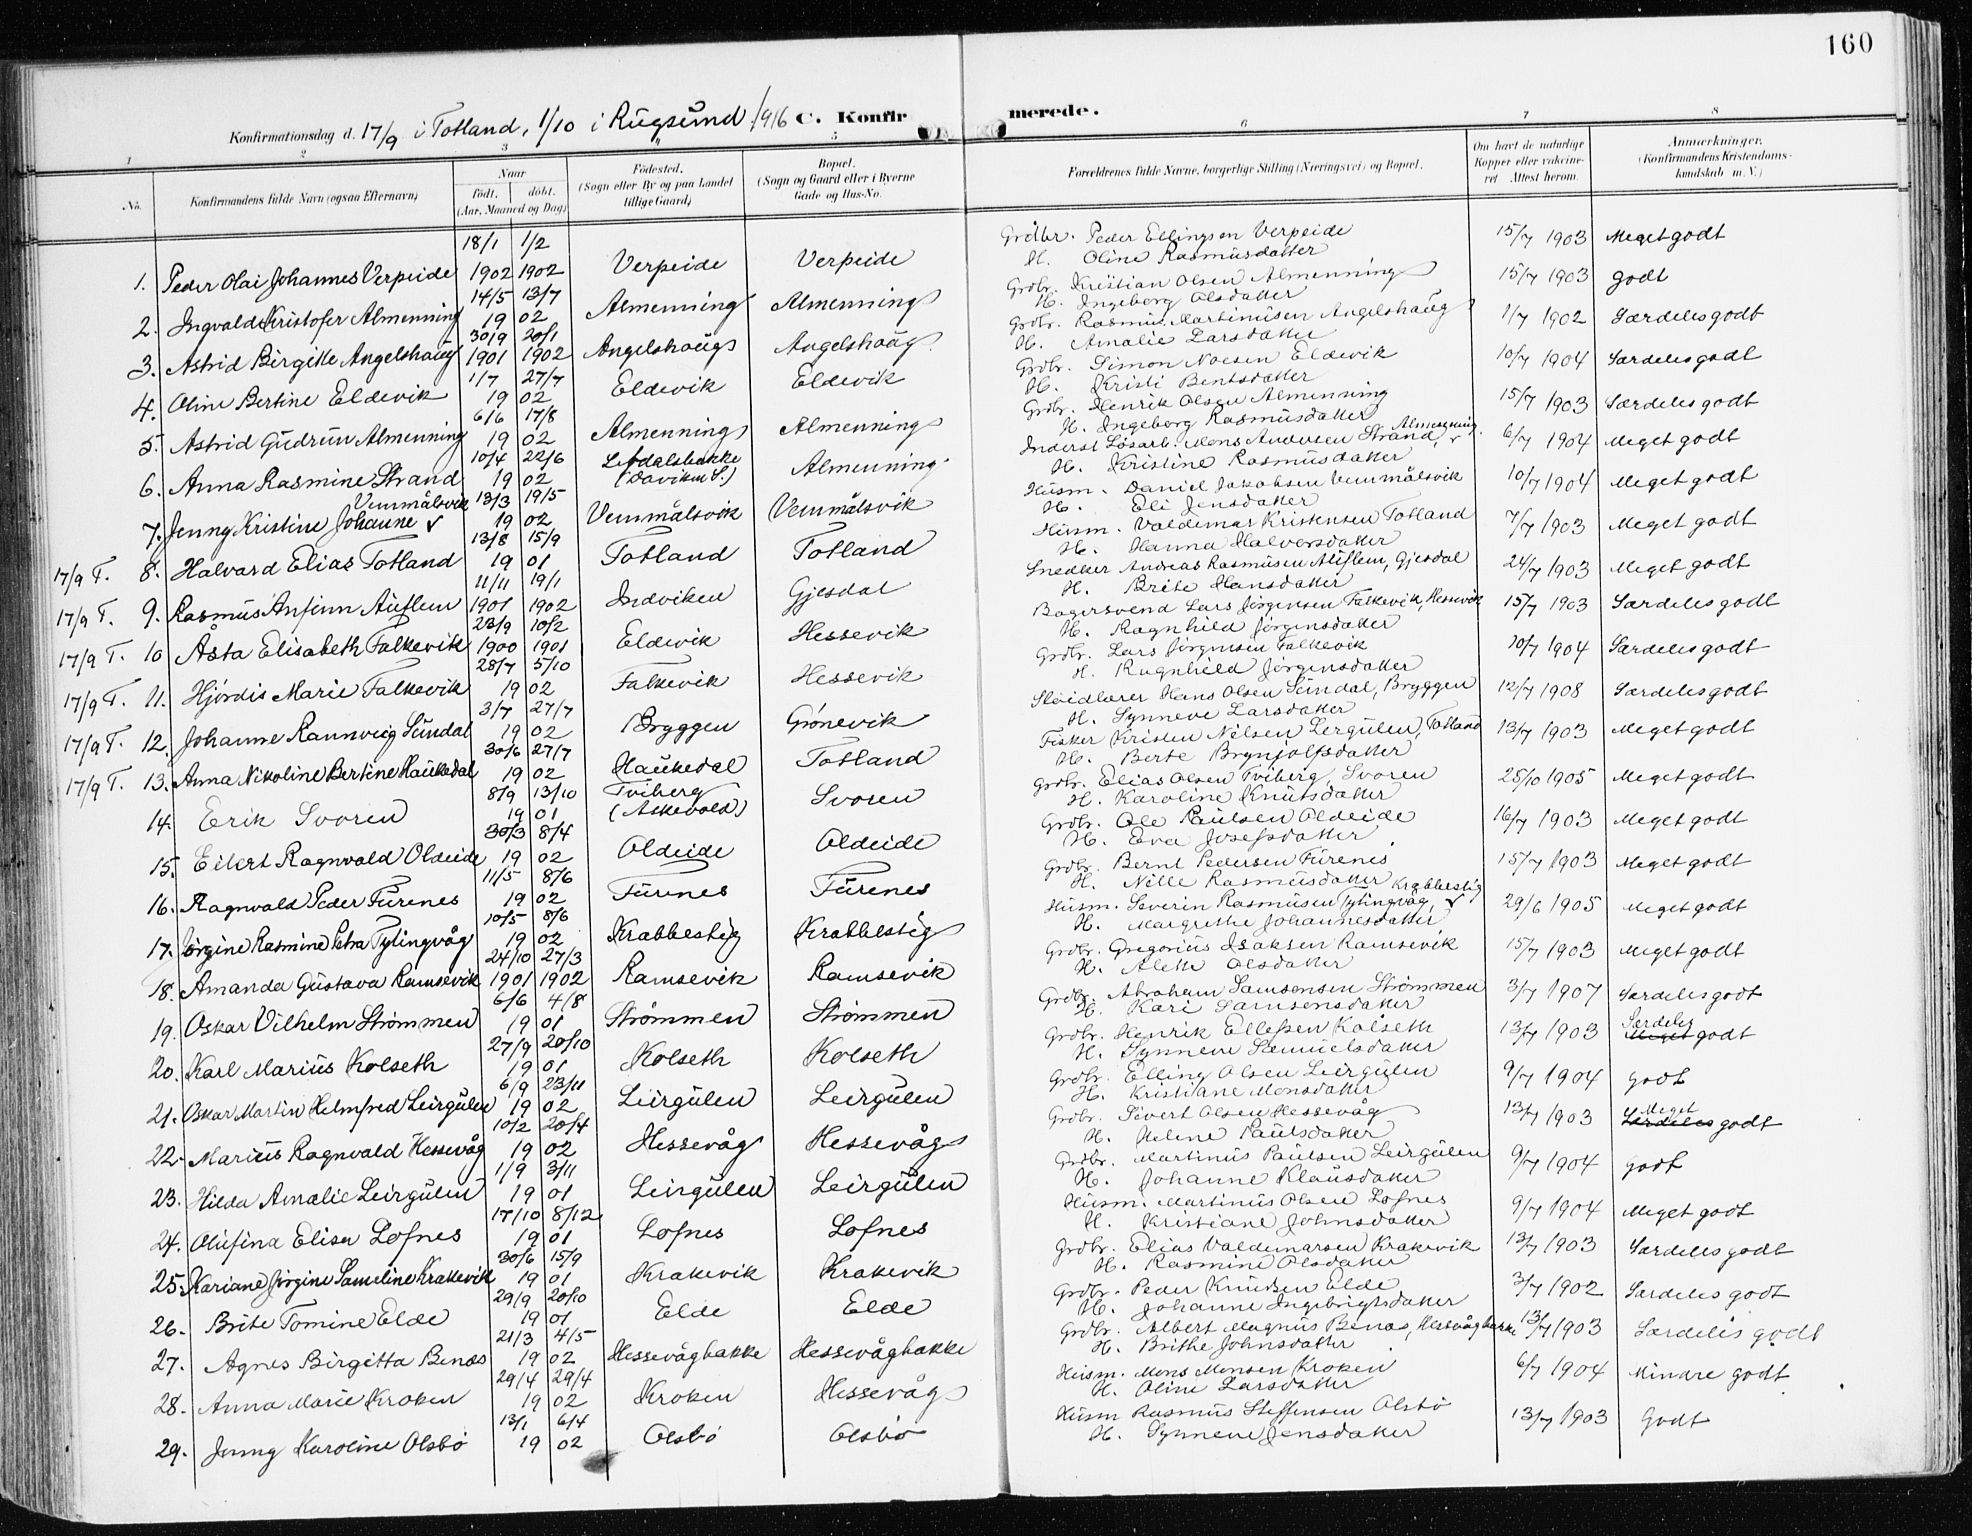 160
Konfirmationsdag d. 17/9 i Totland, 1/10 i Rugsund 1916 C. Konfirmerede.
1 2 3 5 6 7 8
No. Konfirmandens fulde Navn (ogsaa Efternavn) Naar født. døbt. (Aar, Maaned og Dag) Fødested. (Sogn eller By og paa Landet tillige Gaard) Bopæl. (Sogn og Gaard eller i Byerne Gade og Hus-No. Forældrenes fulde Navne, borgerlige Stilling (Næringsvei) og Bopæl. Om havt de naturlige Kopper eller vakcineret. Attest herom. Anmærkninger. (Konfirmandens Kristendomskundskab m. V.)
1. Peder Olai Johannes Verpeide 18/1 1902 1/2 1902 Verpeide Verpeide Grdbr. Peder Ellingsen Verpeide H. Oline Rasmusdatter 15/7 1903 Meget godt
2. Ingvald Kristofer Almenning 14/5 13/7 19 02 Almenning Almenning Grdbr. Kristian Olsen Almenning H. Ingeborg Olsdatter 15/7 1903 godt
3. Astrid Birgitte Angelshaug 30/9 1901 20/1 1902 Angelshaug Angelshaug Grdbr. Rasmus Martinusen Angelshaug H. Amalie Larsdatter 1/7 1902 Særdeles godt
4. Oline Bertine Eldevik 1/7 27/7 19 02 Eldevik Eldevik Grdbr. Simon Noesen Eldevik H. Kristi Bentsdatter 10/7 1904 Særdeles godt
5. Astrid Gudrun Almenning 6/6 17/8 19 02 Almenning Almenning Grdbr. Henrik Olsen Almenning H. Ingeborg Rasmusdatter 15/7 1903 Særdeles godt
6. Anna Rasmine Strand 10/4 22/6 19 02 (Daviken S.) Almenning Inderst Løsarb. Mons Andersen Strand, Almenning H. Kristine Rasmusdatter 6/7 1904 Meget godt
7. Jenny Kristine Johanne Vemmålsvik 13/3 19/5 19 02 Vemmålsvik Vemmålsvik Husm. Daniel Jakobsen Vemmålsvik H. Eli Jensdatter 10/7 1904 Meget godt
17/9 T. 8. Halvard Elias Totland 13/8 15/9 19 01 Totland Totland Husm. Valdemar Kristensen Totland H. Hanna Halvorsdatter 7/7 1903 Meget godt
17/9 T. 9. Rasmus Anfinn Auflem 11/11 1901 19/1 1902 Indviken Gjesdal Snedker Andreas Rasmusen Auflem, Gjesdal H. Brite Hansdatter 24/7 1903 Meget godt
17/9 T. 10 Åsta Elisabeth Falkevik 23/9 1900 10/2 1901 Eldevik Hessevik Bagersvend Lars Jørgensen Falkevik, Hessevik H. Ragnhild Jørgensdatter 15/7 1903 Særdeles godt
17/9 T. 11. Hjørdis Marie Falkevik 28/7 5/10 19 02 Falkevik Hessevik Grdbr. Lars Jørgensen Falkevik H. Ragnhild Jørgensdatter 10/7 1904 Særdeles godt
17/9 T. 12. Johanne Rannveig Sundal 3/7 27/7 19 02 Bryggen Grønevik Sløidlærer Hans Olsen Sundal, Bryggen H. Synneve Larsdatter 12/7 1908 Særdeles godt
17/9 T. 13. Anna Nikoline Bertine Haukedal 30/6 27/7 19 02 Haukedal Totland Fisker Kristen Nilsen Lergulen, Totland H. Berte Brynjolfsdatter 13/7 1903 Meget godt
14. Erik Svoren 8/9 13/10 19 01 Tviberg (Askevold) Svoren Grdbr. Elias Olsen Tviberg, Svoren H. Karoline Knutsdatter 25/10 1905 Meget godt
15. Eilert Ragnvald Oldeide 30/3 8/4 19 02 Oldeide Oldeide Grdbr. Ole Paulsen Oldeide H. Eva Josefsdatter 16/7 1903 Meget godt
16. Ragnvald Peder Furenes 11/5 8/6 19 02 Furenes Furenes Grdbr. Bernt Pedersen Furenes H. Nille Rasmusdatter 15/7 1903 Meget godt
17. Jørgine Rasmine Petra Tytingvåg 10/5 8/6 19 02 Krabbestig Krabbestig Husm. Severin Rasmusen Tytingvåg, Krabbestig H. Margrethe Johannesdatter 29/6 1905 Meget godt
18. Amanda Gustava Ramsevik 24/10 1901 27/3 1902 Ramsevik Ramsevik Grdbr. Gregorius Isaksen Ramsevik H. Alette Olsdatter 15/7 1903 Meget godt
19. Oskar Vilhelm Strømmen 6/6 4/8 19 01 Strømmen Strømmen Grdbr. Abraham Samsonsen Strømmen H. Kari Samsonsdatter 3/7 1907 Særdeles godt
20. Karl Marius Kolseth 27/9 20/10 19 01 Kolseth Kolseth Grdbr. Henrik Ellefsen Kolseth H. Synneve Samuelsdatter 13/7 1903 Særdeles Meget godt
21. Oskar Martin Helmfred Leirgulen 6/9 23/11 19 02 Leirgulen Leirgulen Grdbr. Elling Olsen Leirgulen H. Kristiane Monsdatter 9/7 1904 godt
22. Marius Ragnvald Hessevåg 10/2 20/4 19 02 Hessevåg Hessevåg Grdbr. Sivert Olsen Hessevåg H. Helene Paulsdatter 13/7 1903 Meget Særdeles godt
23. Hilda Amalie Leirgulen 1/9 3/11 19 01 Leirgulen Leirgulen Grdbr. Martinus Paulsen Leirgulen H. Johanne Klausdatter 9/7 1904 godt
24. Olufina Elisa Lofnes 17/10 8/12 19 01 Lofnes Lofnes Husm. Martinus Olsen Lofnes H. Kristiane Johnsdatter 9/7 1904 Meget godt
25. Kariane Jørgine Sameline Krakevik 30/6 15/9 19 01 Krakevik Krakevik Grdbr. Elias Valdemarsen Krakevik H. Rasmine Olsdatter 13/7 1903 Særdeles godt
26. Brite Tomine Elde 29/9 20/10 19 01 Elde Elde Grdbr. Peder Knudsen Elde H. Johanne Ingebrigtsdatter 3/7 1902 Særdeles godt
27. Agnes Birgitta Benæs 21/3 4/5 19 02 Hessevågbakke Hessevågbakke Grdbr. Albert Magnus Benæs, Hessevågbakke H. Brithe Johnsdatter 13/7 1903 Særdeles godt
28. Anna Marie Kroken 29/4 29/4 19 02 Kroken Hessevåg Husm. Mons Monsen Kroken H. Oline Larsdatter 6/7 1904 Mindre godt
29. Jenny Karoline Olsbø 13/1 6/4 19 02 Olsbø Olsbø Husm Rasmus Steffensen Olsbø H. Synneve Jensdatter 13/7 1903 Godt